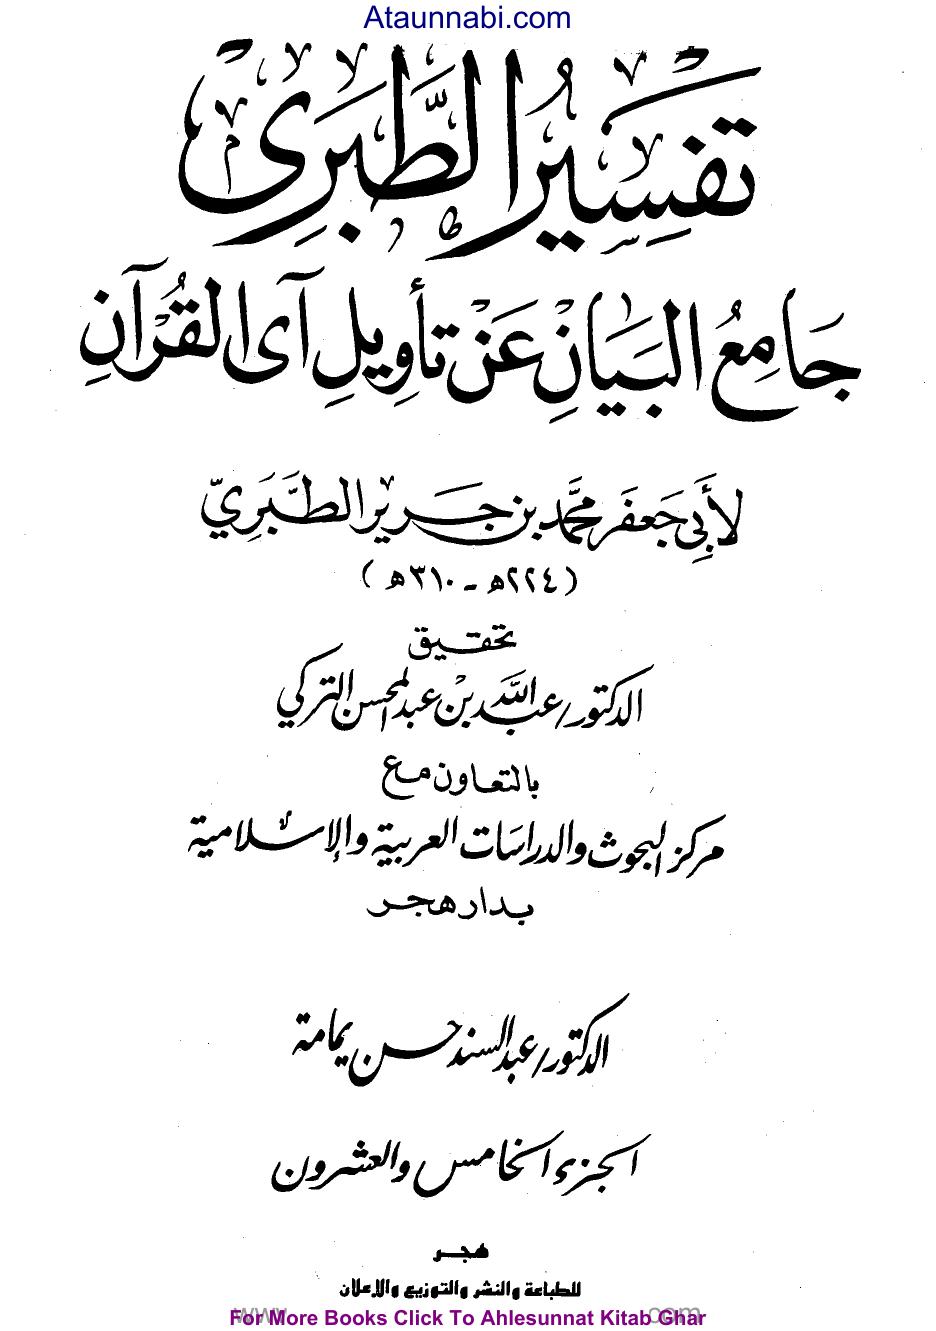 Ataunnabi.com
تَفسِيرُ الطَّبَرِي
جَامِعُ البَيَانِ عَنْ تَأوِيلِ آي القُرْآنِ
لأَبِي جَعفَر مُحَمَّد بن جَرير الطَّبَرِيّ
(٢٢٤هـ - ٣١٠هـ)
تحقيق
الدكتور/ عبد الله بن عبد المحسن التركي
بالتعاون مع
مركز البحوث والدراسات العربية والإسلامية
بدار هجر
الدكتور/ عبد السند حسن يمامة
الجزء الخامس والعشرون
هجر
للطباعة والنشر والتوزيع والإعلان
For More Books Click To Ahlesunnat Kitab Ghar